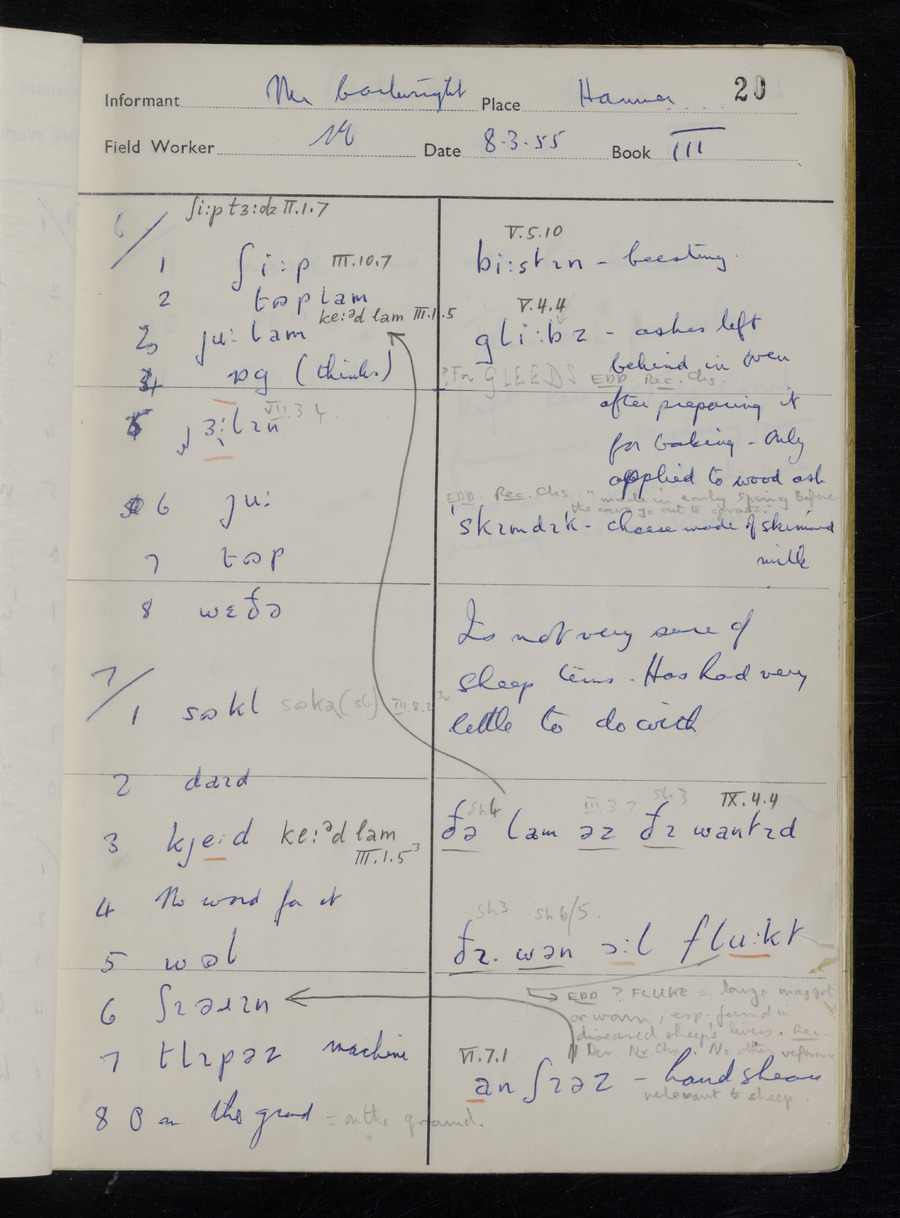 20
Informant Mr Cartwright Place Hanmer
Field Worker Date 8-3-55 Book III
6/ ʃi:p tɜ:dz II.1.7
1 ʃi:p III.10.7
2 tɒp lam
ke:ᵊd lam III.1.5
3 ju: lam
4 ɒg (thinks)
5 VII.3.4
6 ju:
7 tɒp
8 wɛðə
7/
1 sɒkl
2 daɪd
3 kje:d ke:ᵊd lam
III.1.5
4 No word for it
5 wəl
6 ʃɪəɹɪn
7 tlɪpəz machine
8 O on the ground = on the ground.
V.5.10
bi:stɪn - beesting
V.4.4
gli:bz - ashes left
behind in oven
? For GLEEDS EDD. Rec. Chs
after preparing it
for baking - Only
applied to wood ash
EDD. Rec. Chs "made in early spring before
the cows go out to grass."
'skɪmdɪk - cheese made of skimmed
milk
Is not very sure of
sheep terms. Has had very
little to do with
sh4 III.3.7 sh3 IX.4.4
ðə lam əz ðɪ wantɪd
sh3 sh6/5.
ðɪ. wən ɔ:l flu:kt
EDD ? FLUKE = large maggot
or worm, esp. found in
diseased sheep's livers. Rec.
Der. Nr Chs. No other reference
VI.7.1
an ʃɪəz - hand shears
relevant to sheep.